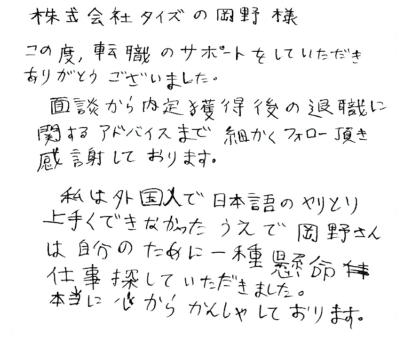 株式会社タイズの岡野様
この度、転職のサポートをしていただき
ありがとうございました。
面談から内定獲得後の退職に
関するアドバイスまで細かくフォロー頂き
感謝しております。
私は外国人で日本語のやりとり
上手くできなかったうえで岡野さん
は自分のために一種懸命
仕事探していただきました。
本当に心からかんしゃしております。